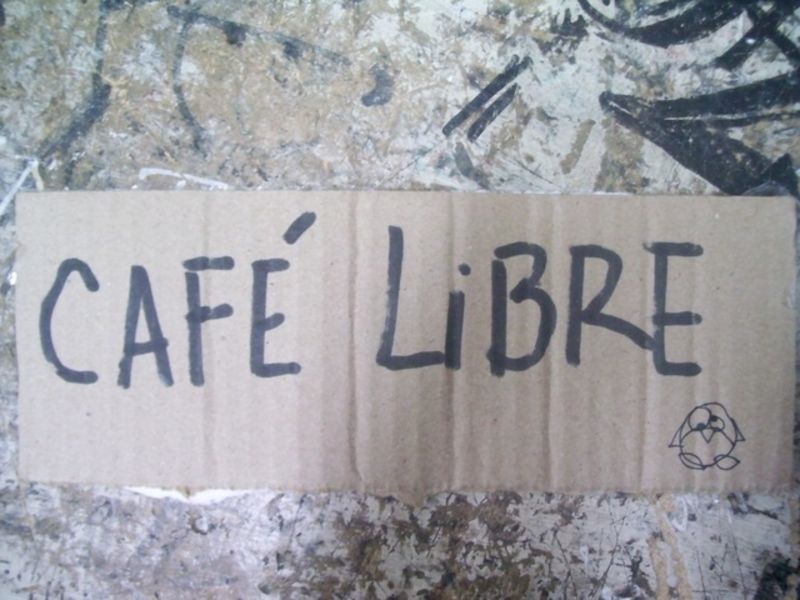 CAFÉ LiBRE